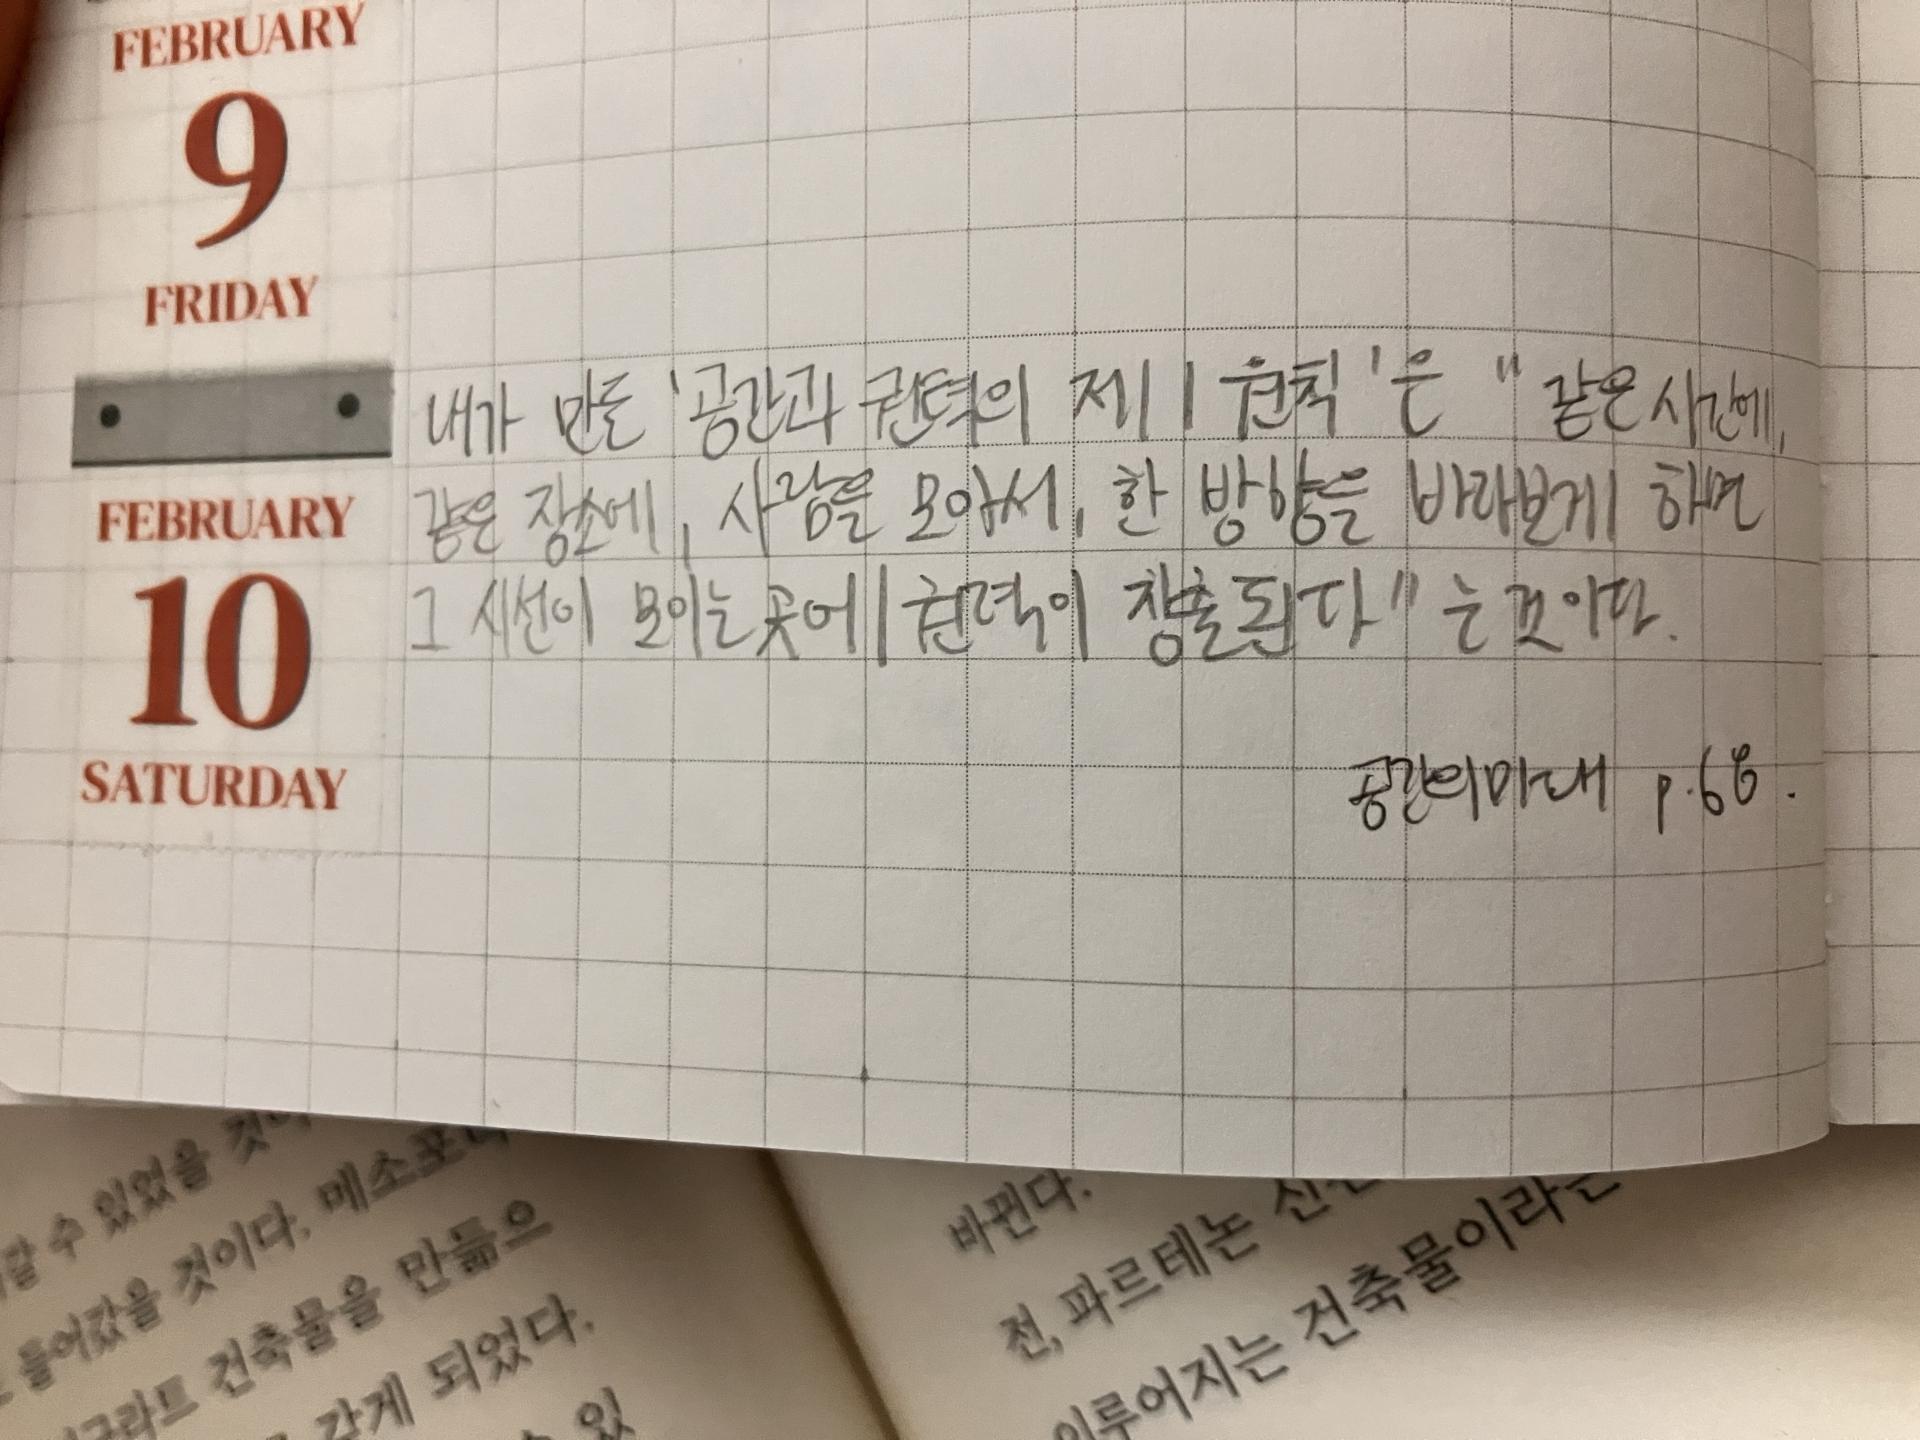 FEBRUARY
9
FRIDAY
FEBRUARY
10
SATURDAY
내가 만든 '공간과 권력의 제 1 원칙'은 "같은 시간에,
같은 장소에, 사람을 모아서, 한 방향을 바라보게 하면
그 시선이 모이는 곳에 권력이 창출된다"는 것이다.
공간의미래 p.68.
수 있었을
들어갔을 것이다. 메소포
건축물을 만듦으
갖게 되었다.
수 있
바뀐다.
전, 파르테논
이루어지는 건축물이라는